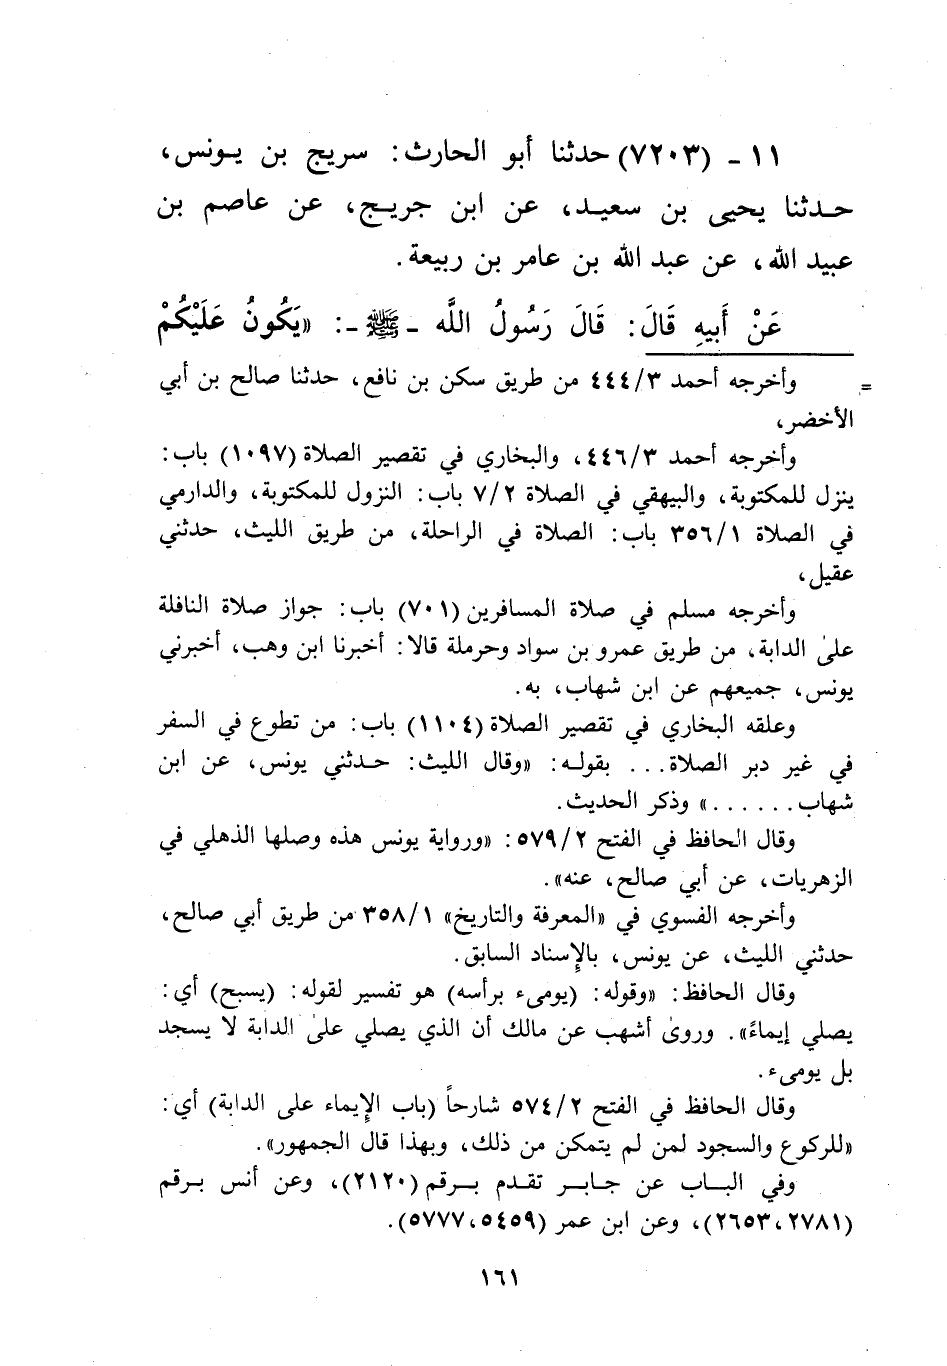 ١١ ـ (٧٢٠٣) حدثنا أبو الحارث: سريج بن يونس،
حدثنا يحيى بن سعيد، عن ابن جريج، عن عاصم بن
عبيد الله، عن عبد الله بن عامر بن ربيعة.
عَنْ أَبِيهِ قَالَ: قَالَ رَسُولُ اللَّه ـ ﷺ ـ: «يَكُونُ عَلَيْكُمْ
= وأخرجه أحمد ٣/٤٤٤ من طريق سكن بن نافع، حدثنا صالح بن أبي
الأخضر،
وأخرجه أحمد ٣/٤٤٦، والبخاري في تقصير الصلاة (١٠٩٧) باب:
ينزل للمكتوبة، والبيهقي في الصلاة ٧/٢ باب: النزول للمكتوبة، والدارمي
في الصلاة ٣٥٦/١ باب: الصلاة في الراحلة، من طريق الليث، حدثني
عقيل،
وأخرجه مسلم في صلاة المسافرين (٧٠١) باب: جواز صلاة النافلة
علىٰ الدابة، من طريق عمرو بن سواد وحرملة قالا: أخبرنا ابن وهب، أخبرني
يونس، جميعهم عن ابن شهاب، به.
وعلقه البخاري في تقصير الصلاة (١١٠٤) باب: من تطوع في السفر
في غير دبر الصلاة... بقوله: «وقال الليث: حدثني يونس، عن ابن
شهاب......» وذكر الحديث.
وقال الحافظ في الفتح ٥٧٩/٢: «ورواية يونس هذه وصلها الذهلي في
الزهريات، عن أبي صالح، عنه».
وأخرجه الفسوي في «المعرفة والتاريخ» ٣٥٨/١ من طريق أبي صالح،
حدثني الليث، عن يونس، بالإسناد السابق.
وقال الحافظ: «وقوله: (يومىء برأسه) هو تفسير لقوله: (يسبح) أي:
يصلي إيماءً». وروىٰ أشهب عن مالك أن الذي يصلي علىٰ الدابة لا يسجد
بل يومىء.
وقال الحافظ في الفتح ٥٧٤/٢ شارحاً (باب الإيماء على الدابة) أي:
«للركوع والسجود لمن لم يتمكن من ذلك، وبهذا قال الجمهور».
وفي الباب عن جابر تقدم برقم (٢١٢٠)، وعن أنس برقم
(٢٦٥٣،٢٧٨١)، وعن ابن عمر (٥٧٧٧،٥٤٥٩).
١٦١